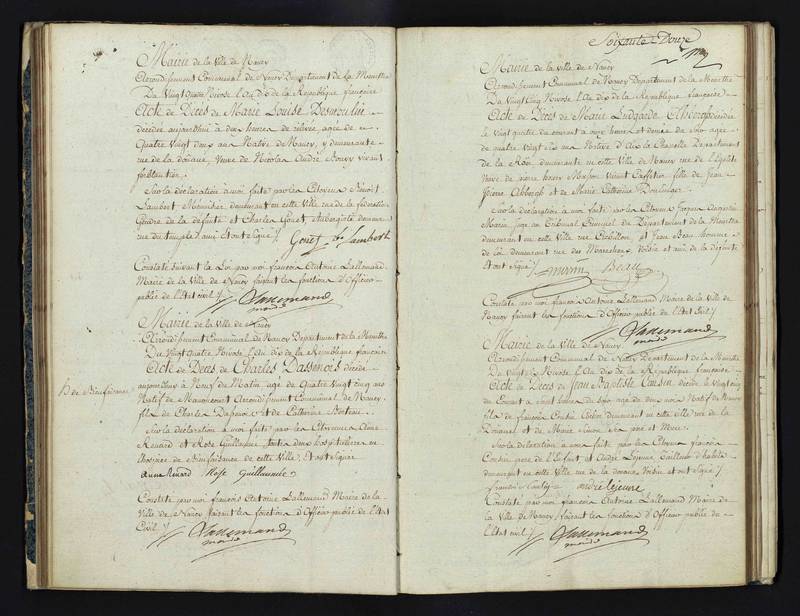 Mairie de la Ville de Nancy
Arrondissement Communal de Nancy Département de La Meurthe
Du Vingt quatre Nivose l'An dix de la République française
Acte de Décès de Marie Louise Desmoulin
décédée aujourd'hui à deux heures de agée de
Quatre Vingt deux ans Native de Nancy, y demeurante
rue de la douane, Veuve de Nicolas André vivant
ferblantier
Sur la déclaration à moi faite par les Citoyens Benoit
Lambert Menuisier demeurant en cette Ville rue de la fédération
Gendre de la défunte et Charles Gouet, Aubergiste demeurant
rue du temple l'ami et ont signé /.
Gouet Lambert
Constaté suivant la Loi par moi françois Antoine Lallemand
Maire de la Ville de Nancy faisant les fonctions d'Officier
public de l'Etat civil /.
Lallemand
maire
Mairie de la Ville de Nancy
Arrondissement Communal de Nancy Département de la Meurthe
Du Vingt quatre Nivose l'An dix de la République française
Acte de Décès de Charles Dassenois décédé
aujourd'hui à Neuf du Matin agé de Quatre Vingt cinq ans
Natif de Arrondissement Communal de Nancy
fils de Charles et de Catherine
Sur la déclaration à moi faite par les Citoyennes Anne
Renard et Rose Guillaume, toutes deux hospitalières en
l'hospice de Bienfaisance de cette Ville, et ont signées
Anne Renard Rose Guillaume
Constaté par moi françois Antoine Lallemand Maire de la
Ville de Nancy faisant les fonctions d'Officier public de l'Etat
Civil /.
Lallemand
maire
h de Bienfaisance
Soixante Douze
Mairie de la ville de Nancy
Arrondissement Communal de Nancy Département de la Meurthe
Du Vingt cinq Nivose l'An dix de la République française
Acte de Décès de Marie Ludgarde décédée
le vingt quatre du courant à onze heures et demie du soir agée
de quatre vingt dix ans Native d'Aix la Chapelle Département
de la Röer demeurante en cette Ville de Nancy rue de l'Egalité
Veuve de pierre henry Masson vivant Caffetier fille de Jean
et de Marie Catherine
Sur la déclaration à moi faite par les Citoyens françois
Marin juge au Tribunal Criminel du Département de la Meurthe
demeurant en cette Ville rue et Jean Beau homme
de loi demeurant rue des Maréchaux, Voisin et ami de la défunte
et ont signé /.
Marin Beau
Constaté par moi françois Antoine Lallemand Maire de la Ville de
Nancy faisant les fonctions d'Officier public de l'Etat Civil /.
Lallemand
maire
Mairie de la Ville de Nancy
Arrondissement Communal de Nancy Département de la Meurthe
Du Vingt Nivose l'An dix de la République française
Acte de Décès de Jean Baptiste Cousin décédé le Vingt cinq
du Courant à sept heures du soir agé de deux mois Natif de Nancy
fils de françois Cousin demeurant en cette Ville rue de la
Douane et de Marie ses père et Mère
Sur la déclaration à moi faite par les Citoyens françois
Cousin père de l'Enfant et André Lejeune Tailleur d'habits
demeurant en cette Ville rue de la douane Voisin et ont signé /.
andré lejeune
Constaté par moi françois Antoine Lallemand Maire de
la Ville de Nancy, faisant les fonctions d'Officier public de
l'Etat civil /.
Lallemand
maire